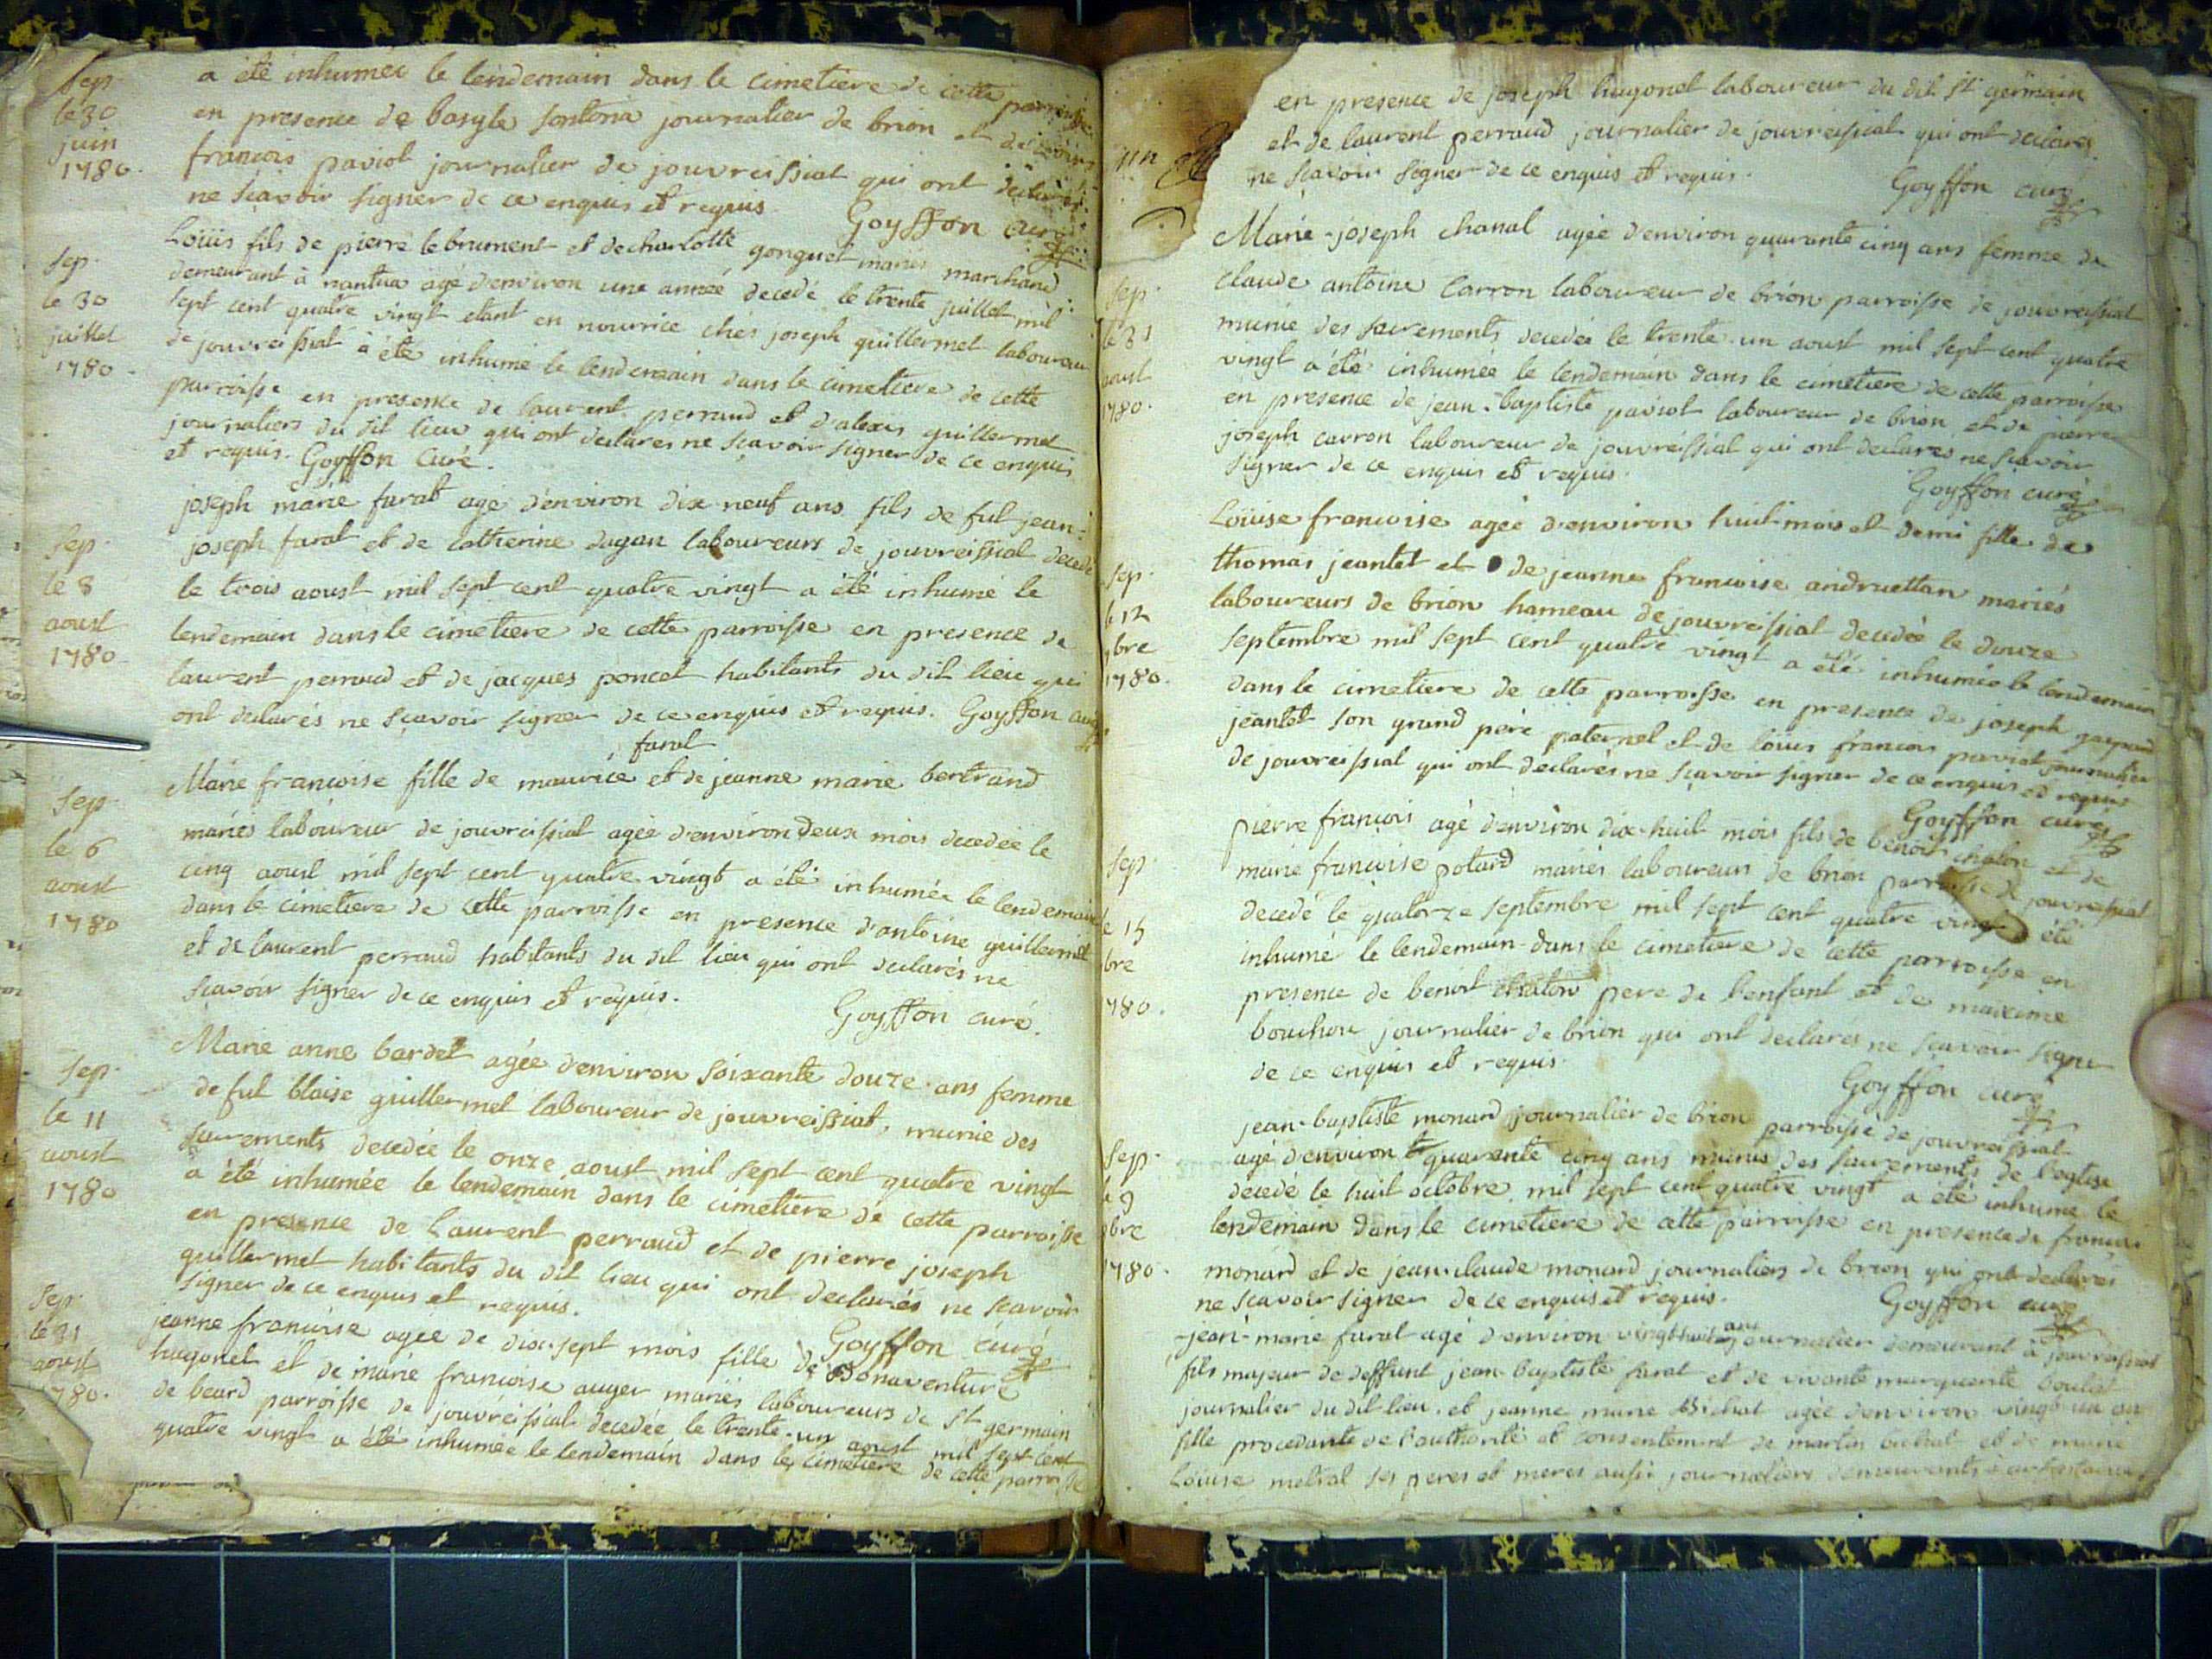 Sep
le 30
juin
1780.
a été inhumée le lendemain dans le cimetiere de cette parroisse
en presence de basyle sontona journalier de brion et de
francois paviot journalier de jouvreissiat qui ont declarés
ne sçavoir signer de ce enquis et requis.
Goyffon curé
Sep.
le 30
juillet
1780.
Loüis fils de pierre lebrument et de charlotte gonguet mariés marchand
demeurant à nantua agé d'environ une année decedé le trente juillet mil
sept cent quatre vingt etant en nourrice chés joseph guillermet laboureur
de jouvreissiat à été inhumé le lendemain dans le cimetiere de cette
parroisse en presence de laurent perraud et d'alexis guillermet
journaliers du dit lieu qui ont declarés ne sçavoir signer de ce enquis
et requis. Goyffon curé.
Sep.
le 8
aoust
1780.
joseph marie farat agé d'environ dix neuf ans fils de fut jean-
joseph farat et de catherine dagan laboureurs de jouvreissiat decedé
le trois aoust mil sept cent quatre vingt a été inhumé le
lendemain dans le cimetiere de cette parroisse en presence de
laurent perraud et de jacques poncet habitants du dit lieu qui
ont declarés ne sçavoir signer de ce enquis et requis. Goyffon curé
Sep.
le 6
aoust
1780
farat
Marie francoise fille de maurice et de jeanne marie bertrand
mariés laboureur de jouvreissiat agée d'environ deux mois decedée le
cinq aoust mil sept cent quatre vingt a été inhumée le lendemain
dans le cimetiere de cette parroisse en presence d'antoine guillermet
et de laurent perraud habitants du dit lieu qui ont declarés ne
scavoir signer de ce enquis et requis.
Goyffon curé.
Sep.
le 11
aoust
1780
Marie anne bardet agée d'environ soixante douze ans femme
de fut blaise guillermet laboureur de jouvreissiat, munie des
sacrements decedée le onze aoust mil sept cent quatre vingt
a été inhumée le lendemain dans le cimetiere de cette parroisse
en presence de Laurent perraud et de pierre joseph
guillermet habitants du dit lieu qui ont declarés ne scavoir
signer de ce enquis et requis.
Goyffon curé
Sep.
le 31
aoust
1780.
jeanne francoise agée de dix-sept mois fille de Bonaventure
hugonet et de marie francoise auger mariés laboureurs de St germain
de beard parroisse de jouvreissiat decedée le trente-un aoust mil sept cent
quatre vingt a été inhumée le lendemain dans le cimetiere de cette parroisse
en presence de joseph hugonet laboureur du dit St germain
et de laurent perraud journalier de jouvreissiat qui ont declarés
ne scavoir segner de ce enquis et requis.
Goyffon curé
Sep.
le 31
aoust
1780.
Marie-joseph chanal agée d'environ quarante cinq ans femme de
claude antoine Carron laboureur de brion parroisse de jouvreissiat
munie des sacrements decedée le trente-un aoust mil sept cent quatre
vingt a été inhumée le lendemain dans le cimetiere de cette parroisse
en presence de jean-baptiste paviot laboureur de brion et de pierre
joseph carron laboureur de jouvreissiat qui ont declarés ne scavoir
signer de ce enquis et requis.
Goyffon curé
Sep.
le 12
bre
1780.
Loüise francoise agée d'environ huit mois et demi fille de
thomas jeantet et de jeanne francoise andruettan mariés
laboureurs de brion hameau de jouvreissiat decedée le douze
septembre mil sept cent quatre vingt a été inhumée le lendemain
dans le cimetiere de cette parroisse en presence de joseph gaspard
jeantet son grand pere paternel et de loüis francois paviot journalier
de jouvreissiat qui ont declarés ne sçavoir signer de ce enquis et requis
Goyffon curé
Sep.
le 15
bre
1780.
pierre françois agé d'environ dix-huit mois fils de benoit chalon et de
marie francoise potard mariés laboureurs de brion parroisse de jouvreissiat
decedé le quatorze septembre mil sept cent quatre vingt a été
inhumé le lendemain dans le cimetiere de cette parroisse en
presence de benoit chalon pere de l'enfant et de maxime
bouchon journalier de brion qui ont declarés ne sçavoir signer
de ce enquis et requis.
Goyffon curé
Sep.
le 9
bre
1780.
jean-baptiste monard journalier de brion parroisse de jouvreissiat
agé d'environ quarante cinq ans munis des sacrements de l'eglise
decedé le huit octobre mil sept cent quatre vingt a été inhumé le
lendemain dans le cimetiere de cette parroisse en presence de francois
monard et de jean-claude monard journaliers de brion qui ont declarés
ne scavoir signer de ce enquis et requis.
Goyffon curé
jean-marie farat agé d'environ vingt-huit ans journalier demeurant à jouvreissiat
fils majeur de deffunt jean-baptiste farat et de vivante marguerite
journalier du dit lieu. et jeanne marie Bichat agée d'environ vingt un an
fille procedante de l'authorité et consentement de martin bichat et de marie
Loüise metral ses peres et meres aussi journaliers demeurants à